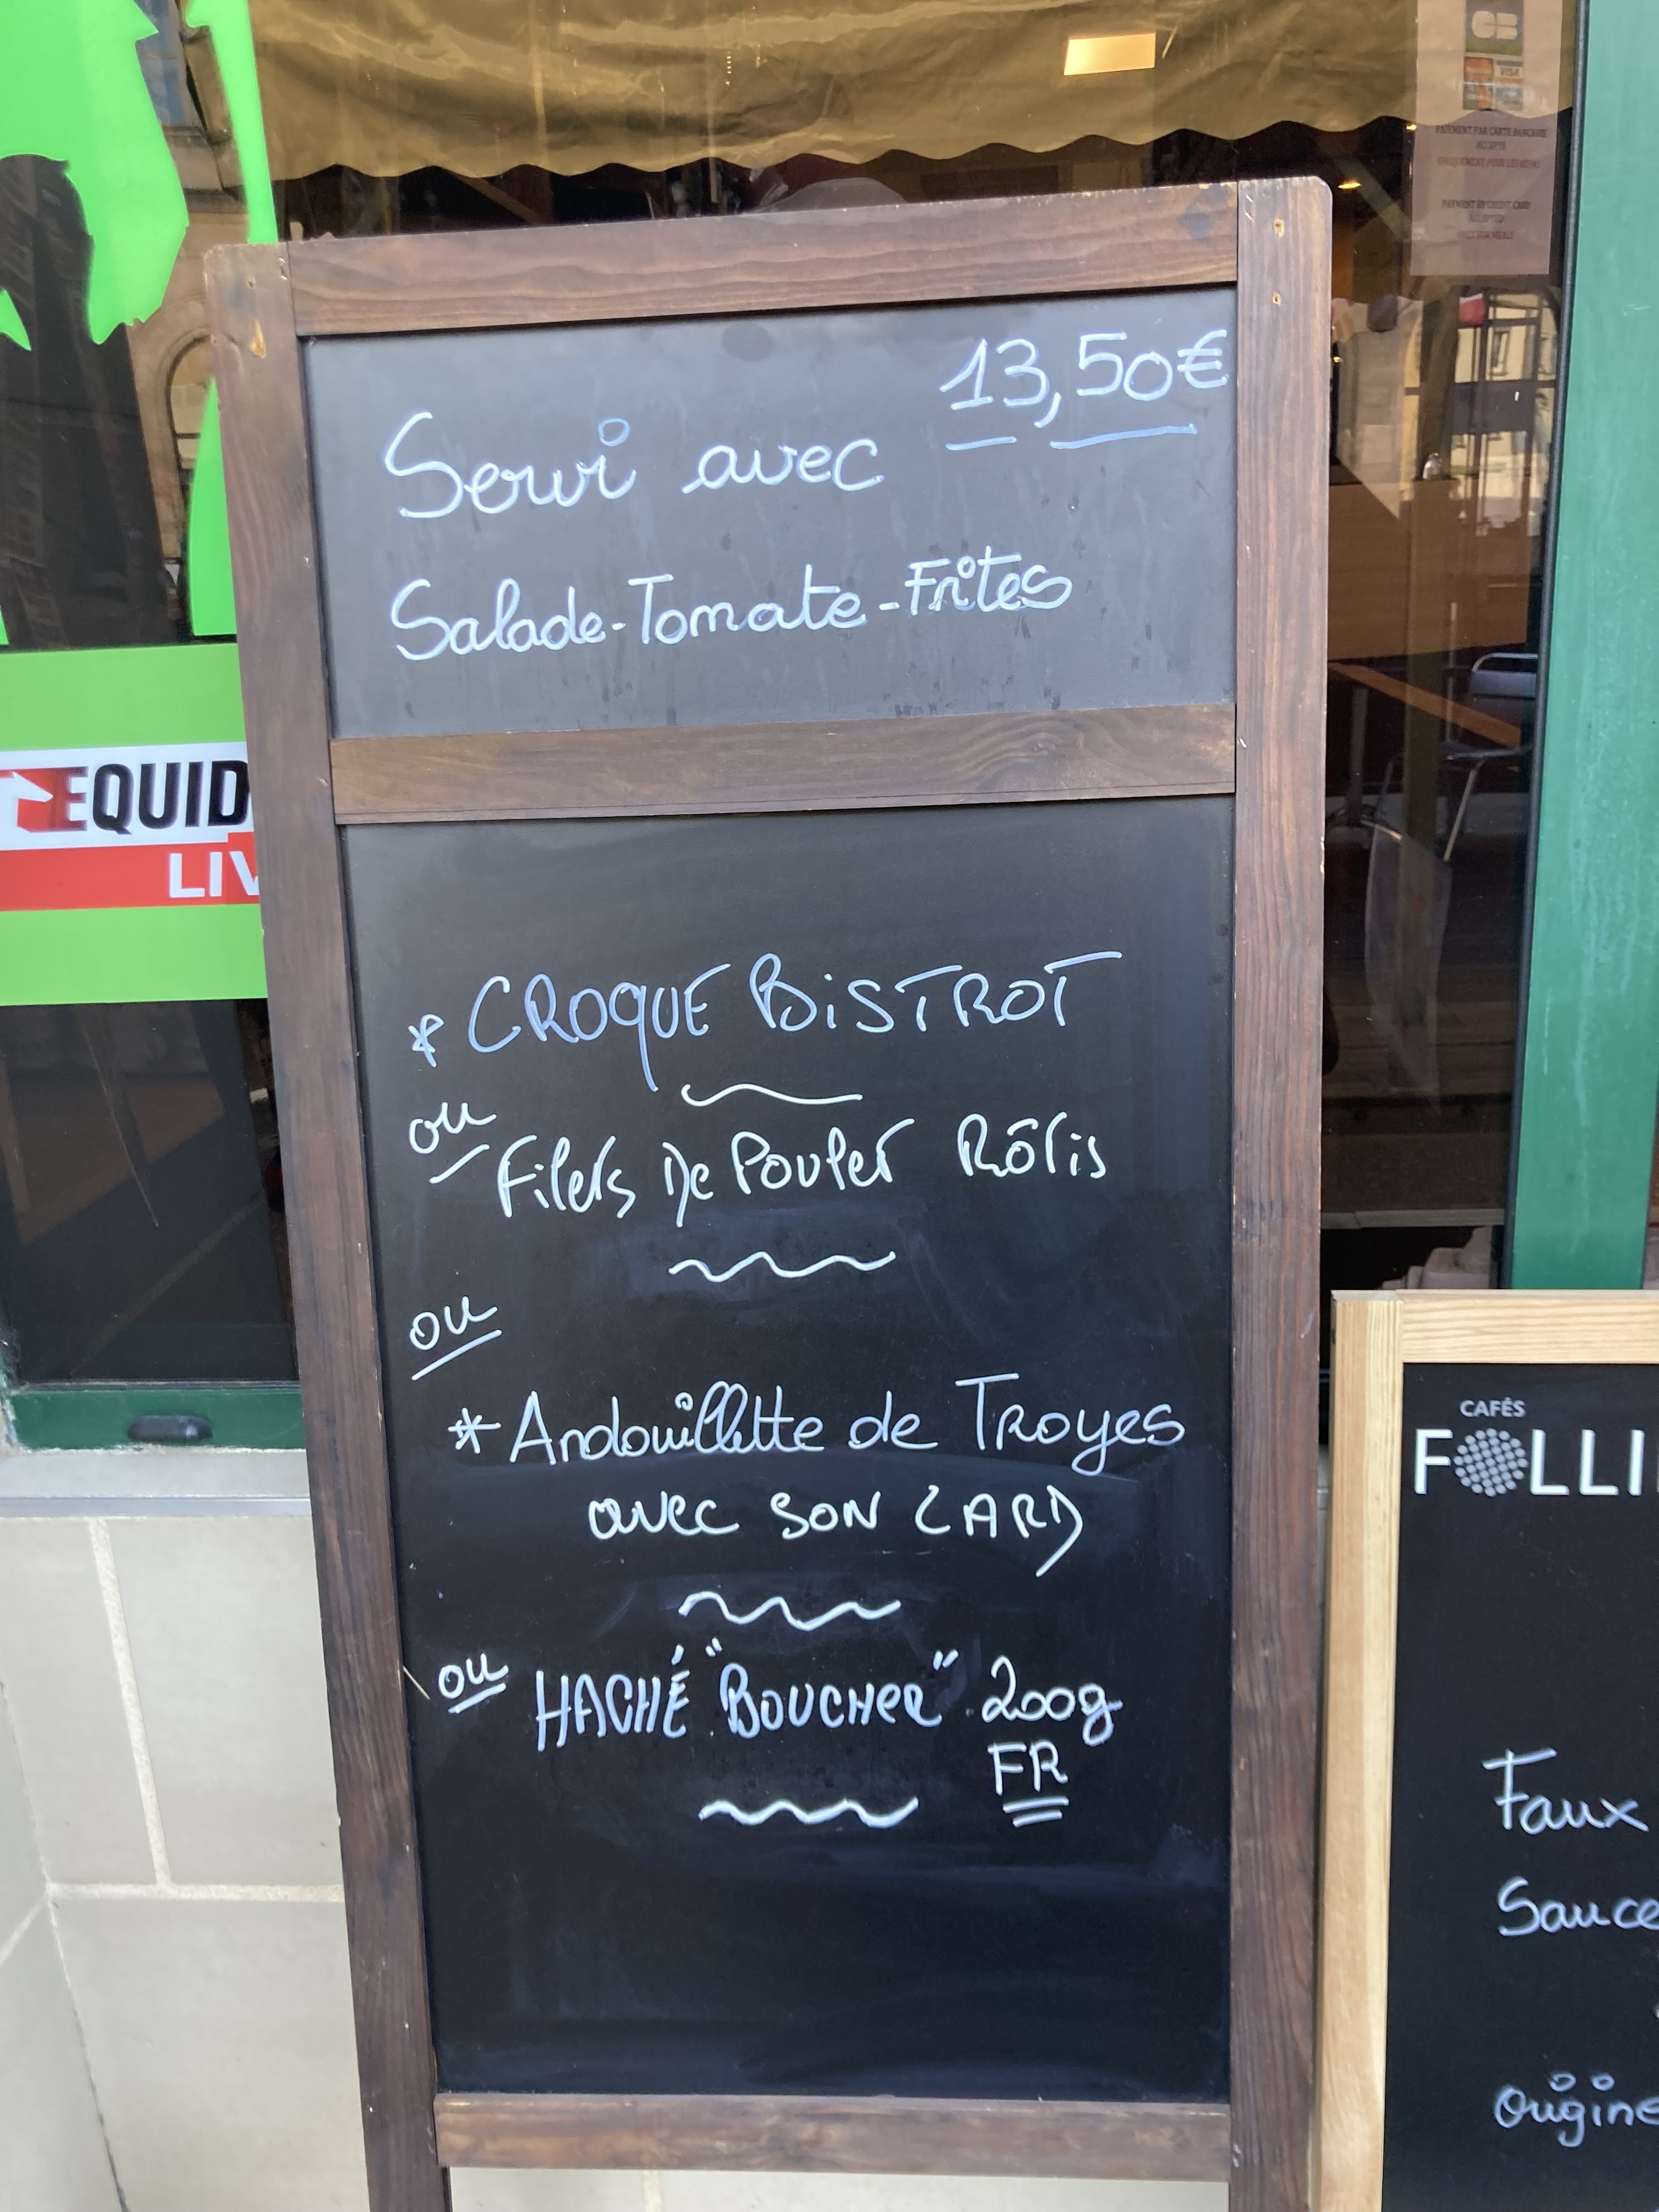 13,50€
Servi avec
Salade-Tomate-Frites
* CROQUE BISTROT
ou
Filets De Poulet Rôtis
ou
* Andouillette de Troyes
avec SON LARD
ou HACHÉ "BOUCHER" 200g
FR
EQUID
LIV
CB
PAIEMENT PAR CARTE BANCAIRE
ACCEPTE
UNIQUEMENT POUR LES REPAS
PAYMENT BY CREDIT CARD
ACCEPTED
ONLY FOR MEALS
CAFÉS
FOLLI
Faux
Sauce
Origine